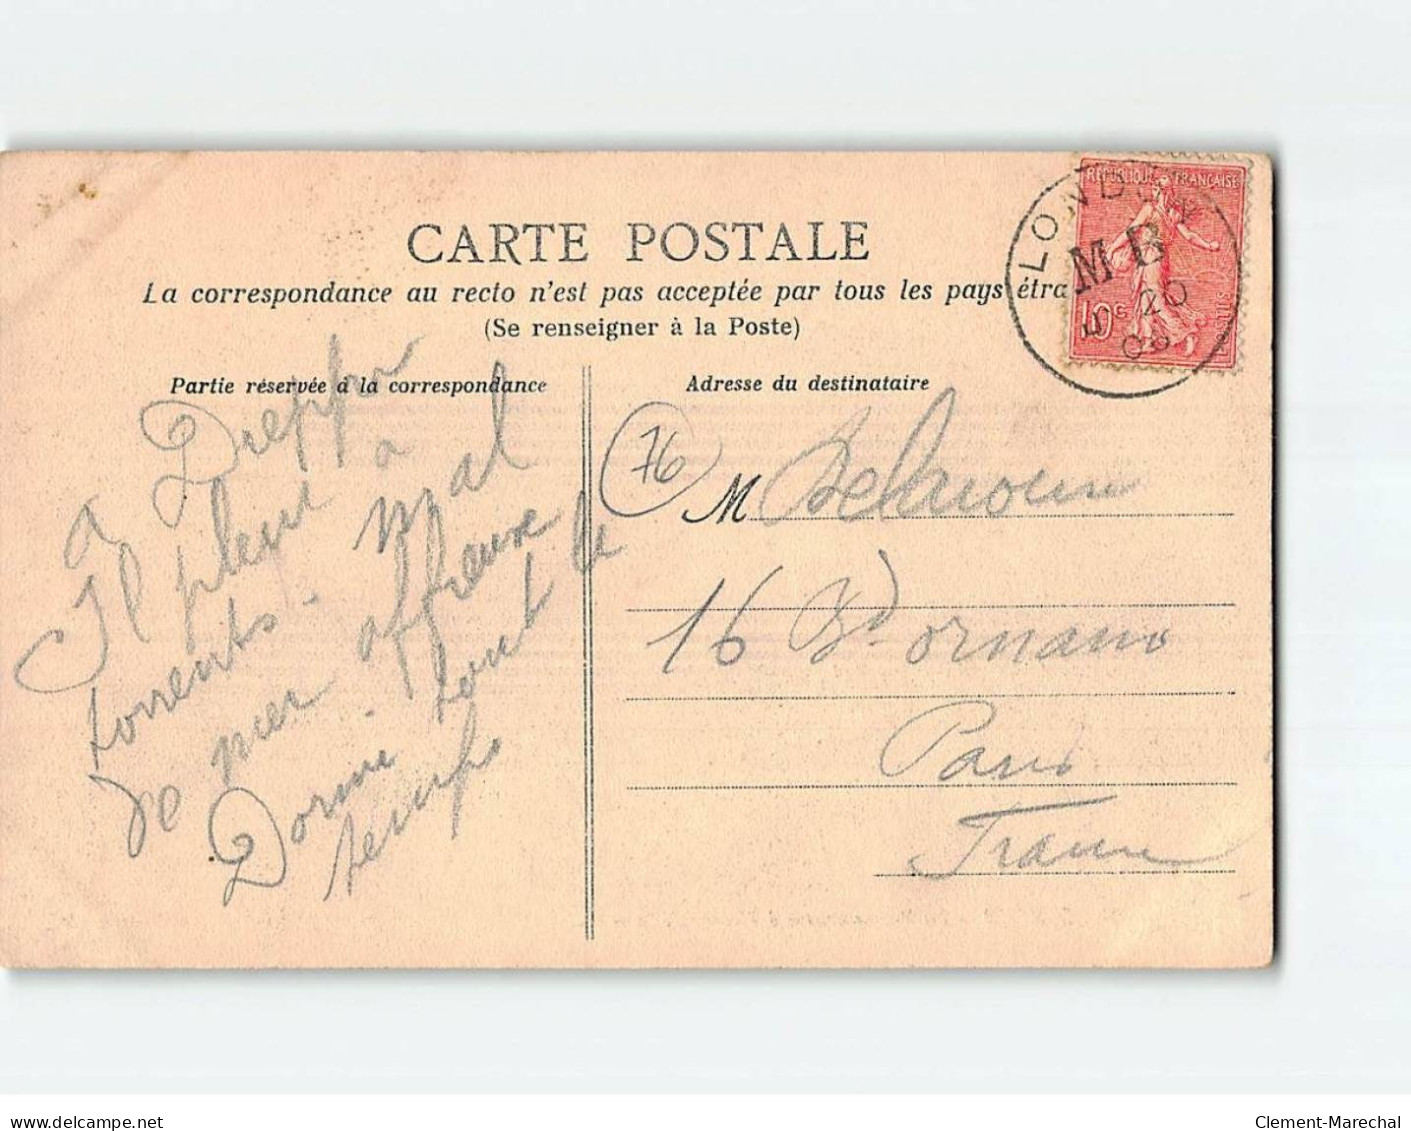 CARTE POSTALE
La correspondance au recto n'est pas acceptée par tous les pays étra
(Se renseigner à la Poste)
Partie réservée à la correspondance
Adresse du destinataire
REPUBLIQUE FRANÇAISE
10 C
LONDON
M B
20
08
à
Il pleut à
torrents - mal
de mer affreuse
Dormi tout le
temps
76
M
16 Bd Ornano
Paris
France
delcampe.net
Clement-Marechal